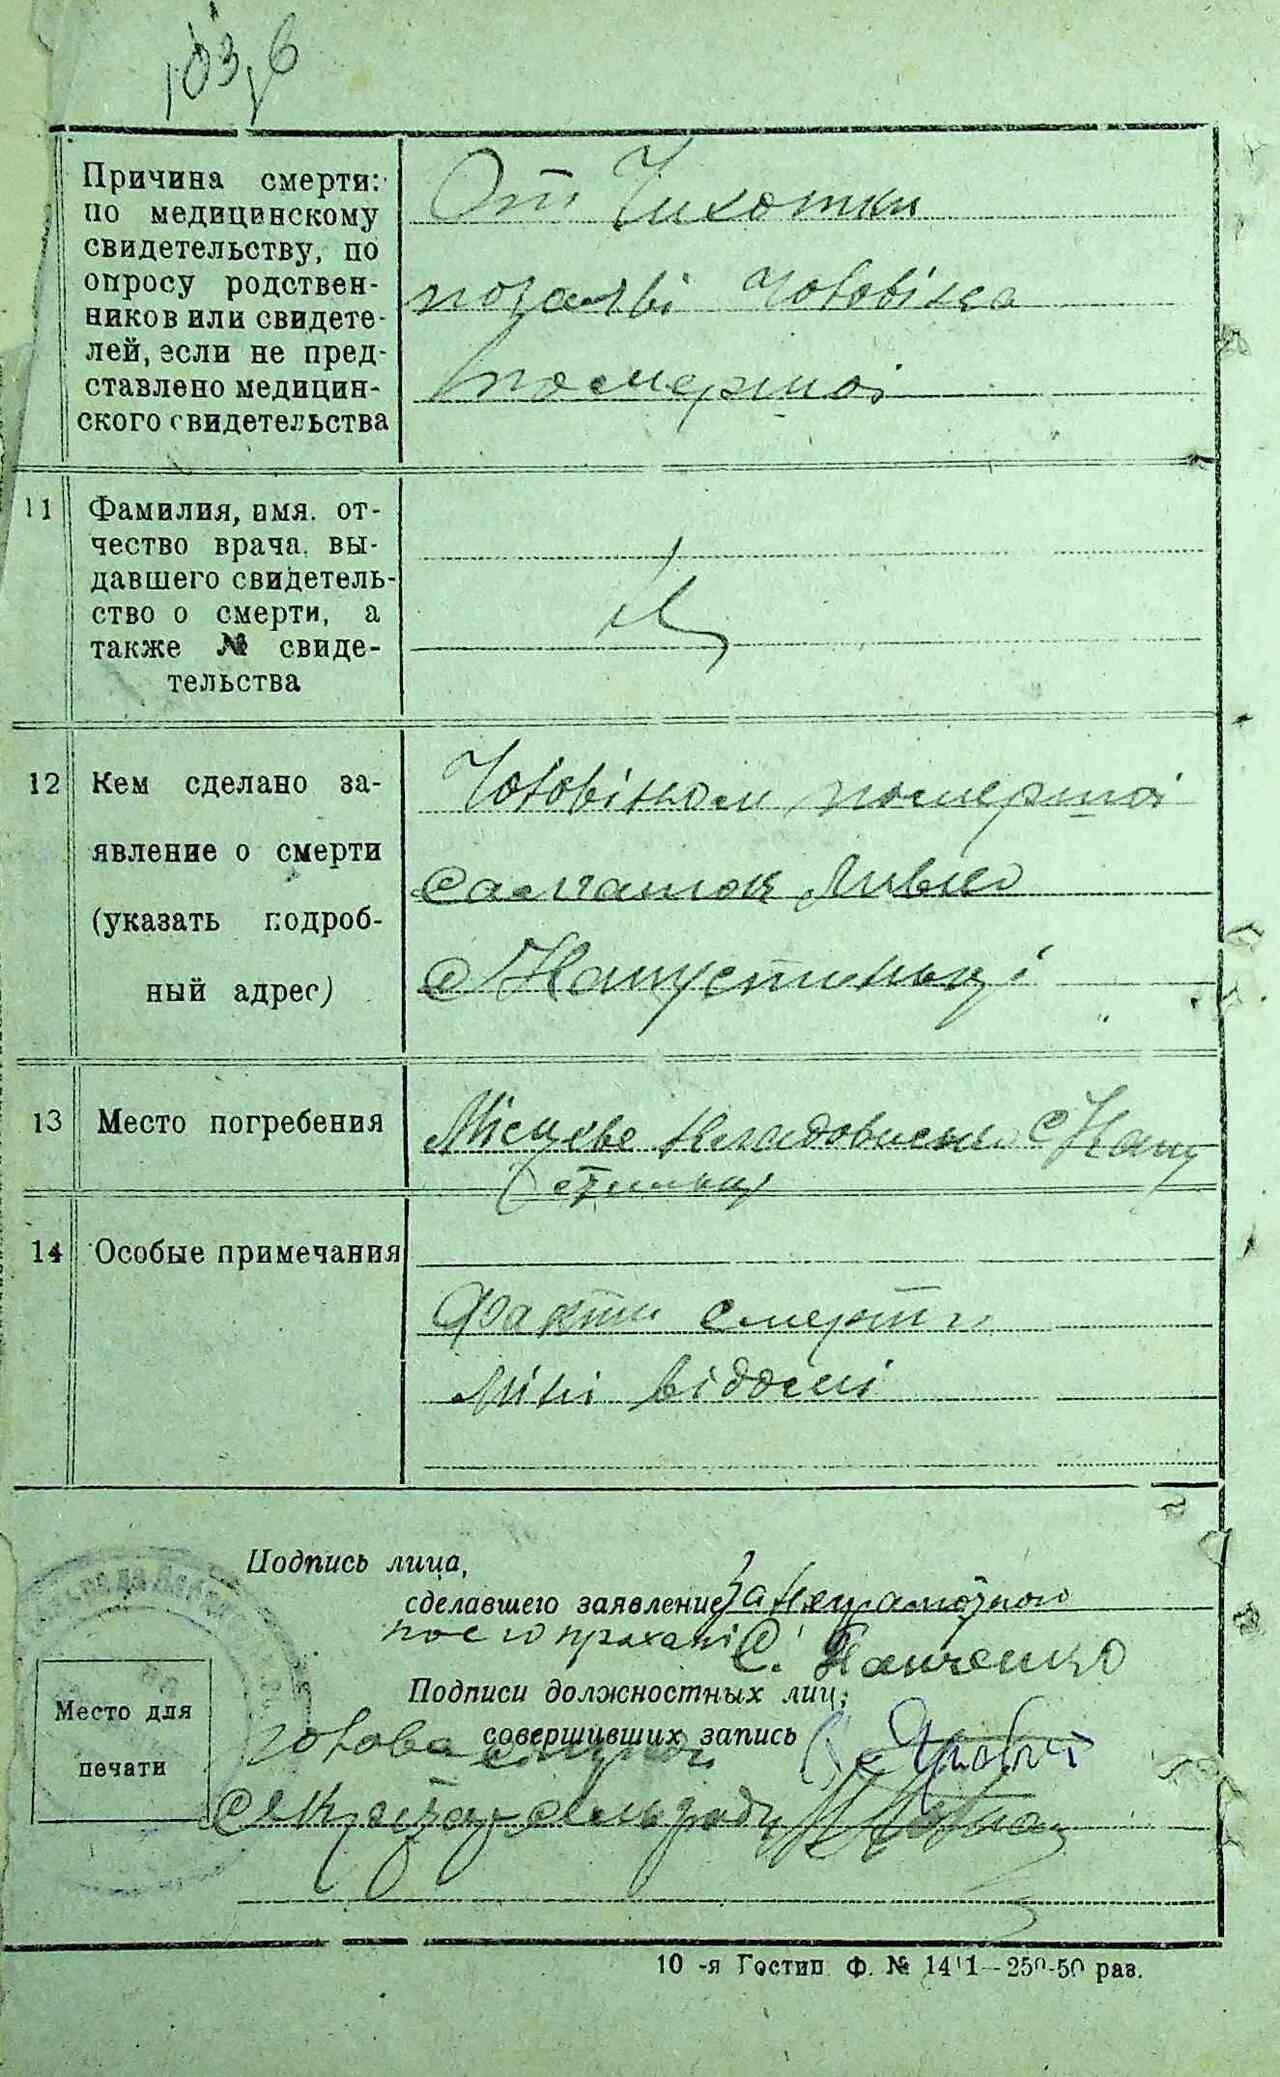 Причина смерти:
по медицинскому
свидетельству, по
опросу родствен-
ников или свидете-
лей, если не пред-
ставлено медицин-
ского свидетельства
От Чихотки
по заяві Чоловіка
помершої
11 Фамилия, имя, от-
чество врача, вы-
давшего свидетель-
ство о смерти, а
также № свиде-
тельства
12 Кем сделано за-
явление о смерти
(указать подроб-
ный адрес)
Чоловіком помершої
с Капустинці
13 Место погребения
Місцеве кладовище с Капу
стинці
14 Особые примечания
Факти смерти
мні відомі
Подпись лица,
сделавшего заявление За неграмотного
по его прохані С. Панченко
Подписи должностных лиц,
совершивших запись
голова
секретар сельради
Место для
печати
10 -я Гостип. Ф. № 1411—250-50 раз.